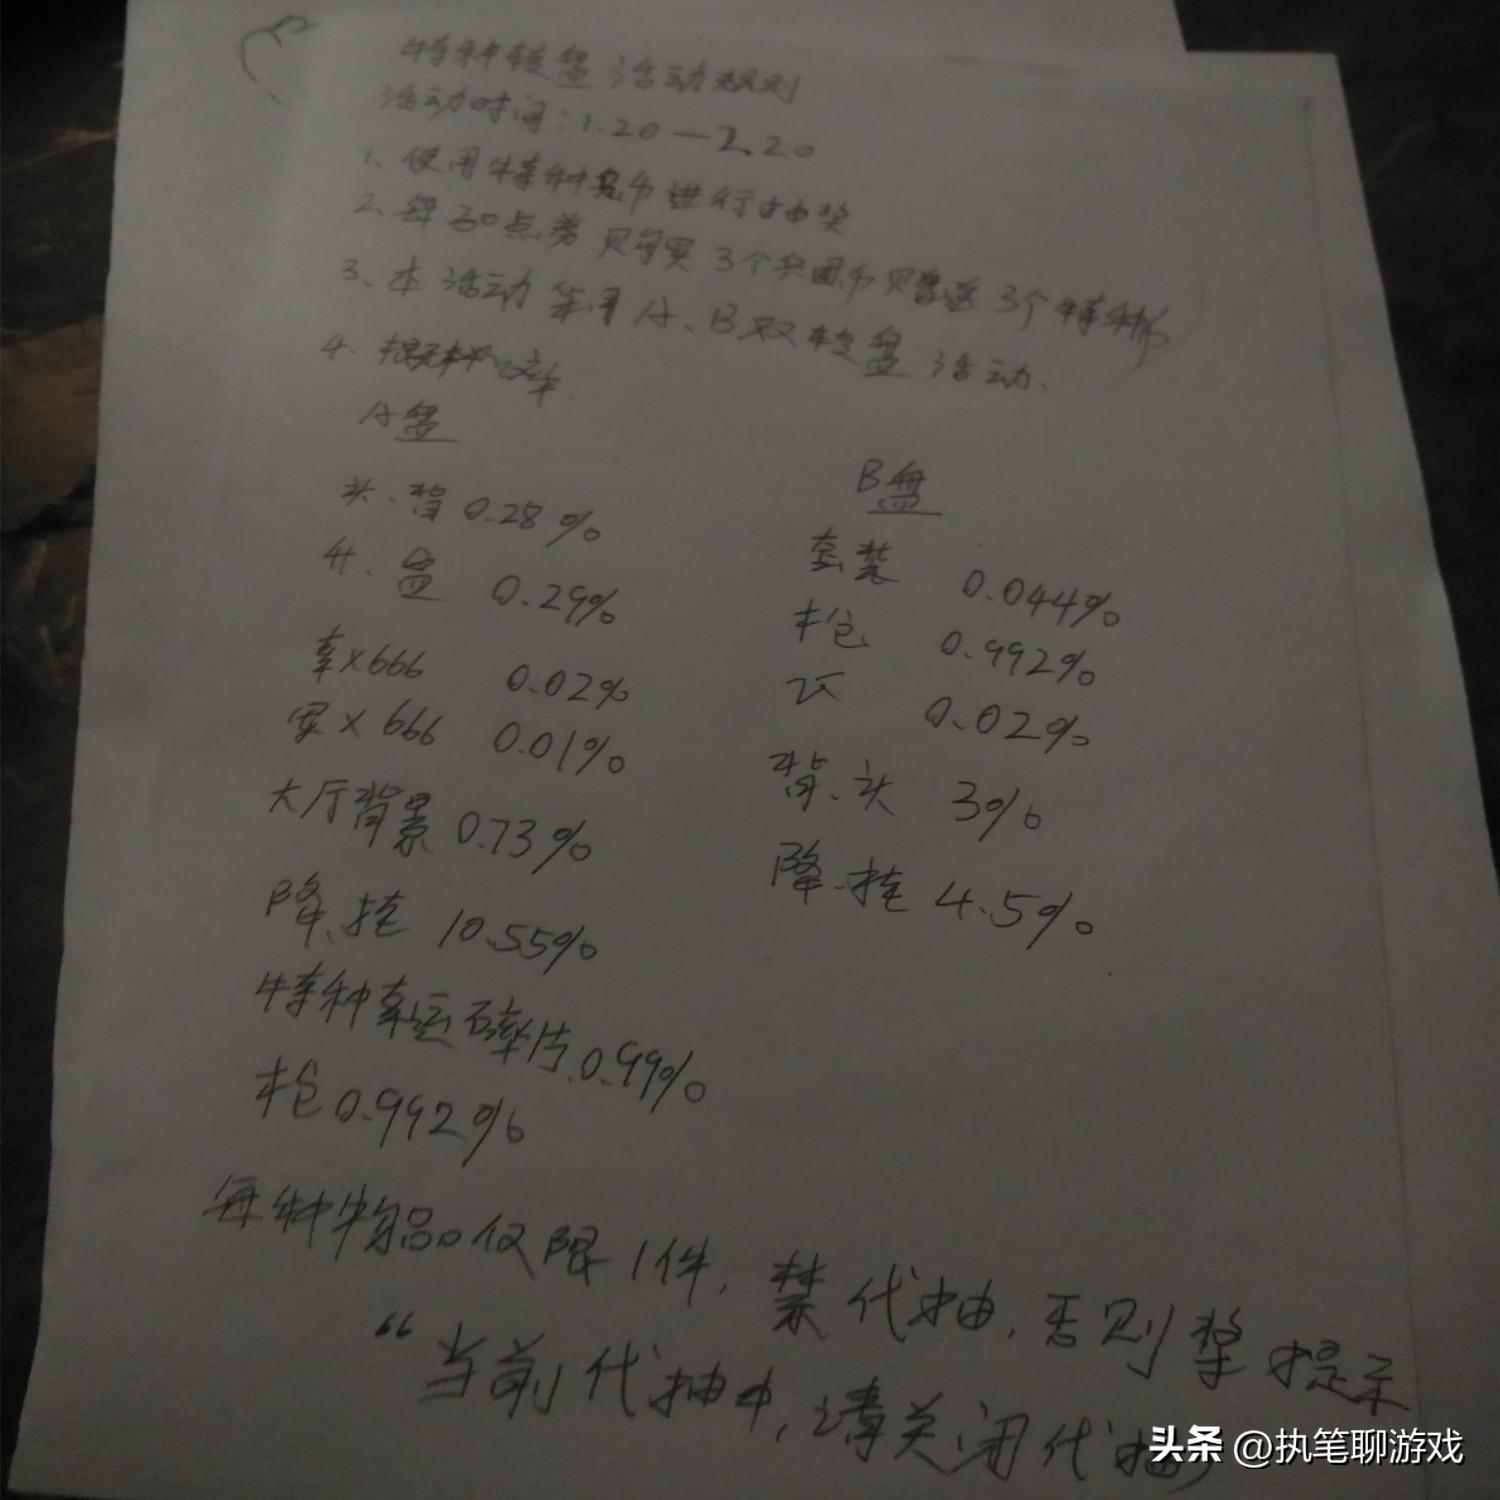 特种转盘活动规则
活动时间:1.20—2.20
1、使用特种兵币进行抽奖
2、每30点券购买3个兑图币赠送3个特种币
3、本活动采用A、B双转盘活动、
4、概率
A盘
头、背0.28%
升、盒 0.29%
幸×666 0.02%
军×666 0.01%
大厅背景0.73%
降、挂 10.55%
特种幸运碎片0.99%
枪0.992%
B盘
套装 0.044%
枪 0.992%
0.02%
背、头 3%
降、挂 4.5%
每种物品仅限1件,禁代抽,否则奖提示
“当前代抽中,请关闭代抽”
头条 @执笔聊游戏